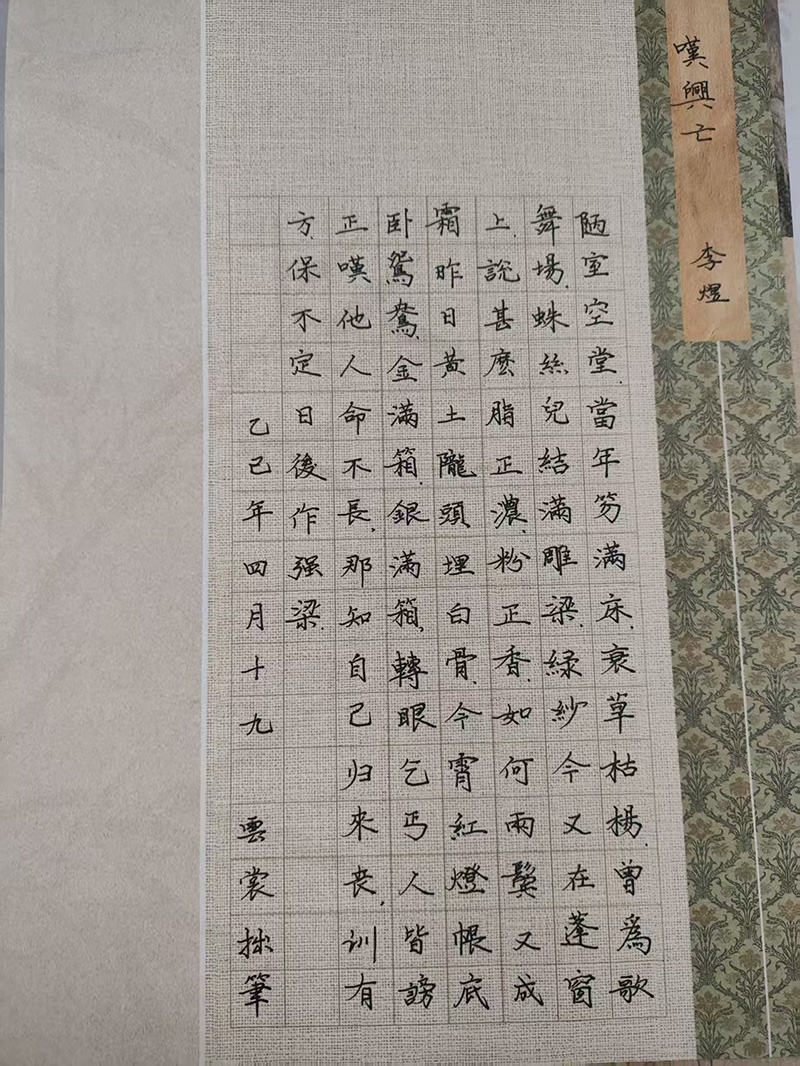 嘆興亡 李煜
陋室空堂.當年笏滿床.衰草枯楊.曾爲歌
舞場.蛛絲兒結滿雕梁.緑紗今又在蓬窗
上.說甚麽脂正濃.粉正香.如何兩鬓又成
霜.昨日黃土隴頭埋白骨.今宵紅燈帳底
卧鴛鴦.金滿箱.銀滿箱.轉眼乞丐人皆謗
正嘆他人命不長.那知自己归來丧.训有
方.保不定日後作强梁.
乙巳年四月十九 雲裳拙筆